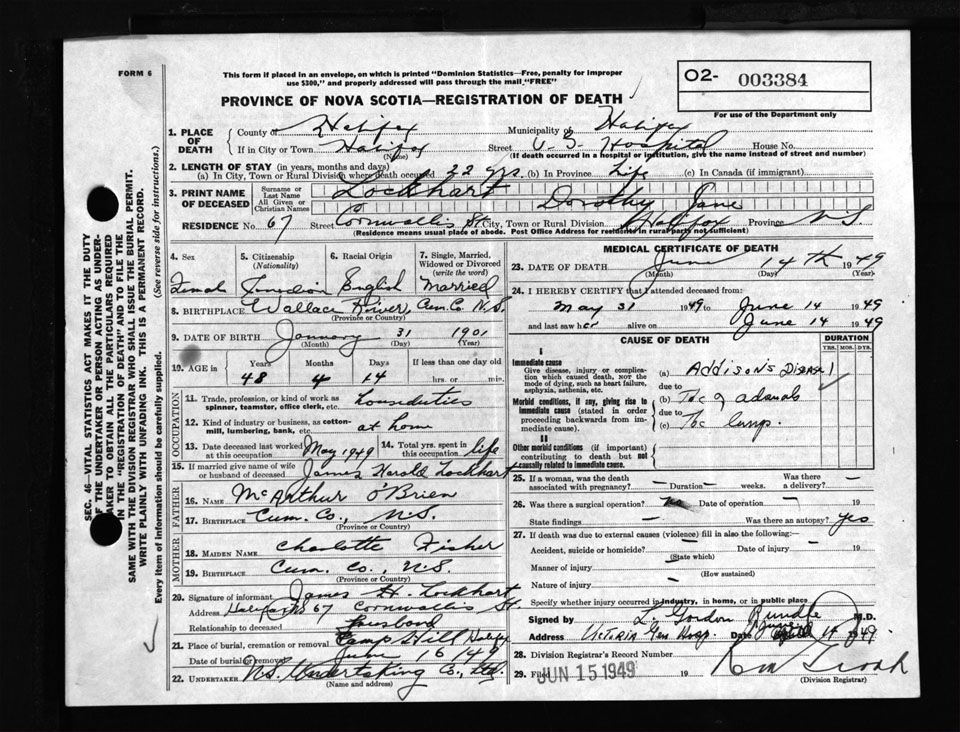 FORM 6
This form if placed in an envelope, on which is printed "Dominion Statistics—Free, penalty for improper
use $300," and properly addressed will pass through the mail "FREE"
O2- 003384
For use of the Department only
PROVINCE OF NOVA SCOTIA—REGISTRATION OF DEATH
1. PLACE OF DEATH
County of Halifax Municipality of Halifax
If in City or Town Halifax Street V. G. Hospital House No.
(Name) (If death occurred in a hospital or institution, give the name instead of street and number)
2. LENGTH OF STAY (in years, months and days)
(a) In City, Town or Rural Division where death occurred 22 yrs. (b) In Province Life (c) In Canada (if immigrant)
3. PRINT NAME OF DECEASED
Surname or Last Name Lockhart
All Given or Christian Names Dorothy Jane
RESIDENCE No. 67 Street Cornwallis St. City, Town or Rural Division Halifax Province N.S.
(Residence means usual place of abode. Post Office Address for residents in rural parts not sufficient)
4. Sex 5. Citizenship (Nationality) 6. Racial Origin 7. Single, Married, Widowed or Divorced (write the word)
Female Canadian English Married
8. BIRTHPLACE Wallace River, Cum. Co. N.S.
(Province or Country)
9. DATE OF BIRTH January 31 1901
(Month) (Day) (Year)
10. AGE in Years Months Days If less than one day old
48 4 14 hrs. or min.
OCCUPATION
11. Trade, profession, or kind of work as spinner, teamster, office clerk, etc. houseduties
12. Kind of industry or business, as cotton-mill, lumbering, bank, etc. at home
13. Date deceased last worked at this occupation May 1949 14. Total yrs. spent in this occupation life
15. If married give name of wife or husband of deceased James Harold Lockhart
FATHER
16. NAME McArthur O'Brien
17. BIRTHPLACE Cum. Co., N.S.
(Province or Country)
MOTHER
18. MAIDEN NAME Charlotte Fisher
19. BIRTHPLACE Cum. Co., N.S.
(Province or Country)
20. Signature of informant James H. Lockhart
Address Halifax 67 Cornwallis St.
Relationship to deceased Husband
21. Place of burial, cremation or removal Camp Hill Halifax
Date of burial or removal June 16 1949
22. UNDERTAKER N.S. Undertaking Co., Ltd.
(Name and address)
MEDICAL CERTIFICATE OF DEATH
23. DATE OF DEATH June 14th 1949
(Month) (Day) (Year)
24. I HEREBY CERTIFY that I attended deceased from:
May 31 1949 to June 14 1949
and last saw her alive on June 14 1949
CAUSE OF DEATH DURATION
YRS. MOS. DYS.
I
Immediate cause
Give disease, injury or complication which caused death, not the mode of dying, such as heart failure, asphyxia, asthenia, etc.
(a) Addison's Disease
due to
Morbid conditions, if any, giving rise to immediate cause (stated in order proceeding backwards from immediate cause).
(b) Tbc of adrenals
due to
(c) Tbc lungs.
II
Other morbid conditions (if important) contributing to death but not causally related to immediate cause.
25. If a woman, was the death associated with pregnancy? — Duration — weeks. Was there a delivery? —
26. Was there a surgical operation? No Date of operation — 19
State findings — Was there an autopsy? yes
27. If death was due to external causes (violence) fill in also the following:
Accident, suicide or homicide? — Date of injury — 19
(State which)
Manner of injury —
(How sustained)
Nature of injury —
Specify whether injury occurred in industry, in home, or in public place
Signed by L. Gordon Rundle M.D.
Address Victoria Gen Hosp. Date June 14 1949.
28. Division Registrar's Record Number
29. Filed JUN 15 1949 19
(Division Registrar)
SEC. 46—VITAL STATISTICS ACT MAKES IT THE DUTY
OF THE UNDERTAKER OR PERSON ACTING AS UNDERTAKER
TO OBTAIN ALL THE PARTICULARS REQUIRED
IN THE "REGISTRATION OF DEATH" AND TO FILE THE
SAME WITH THE DIVISION REGISTRAR WHO SHALL ISSUE THE BURIAL PERMIT.
WRITE PLAINLY WITH UNFADING INK. THIS IS A PERMANENT RECORD.
Every item of information should be carefully supplied. (See reverse side for instructions.)